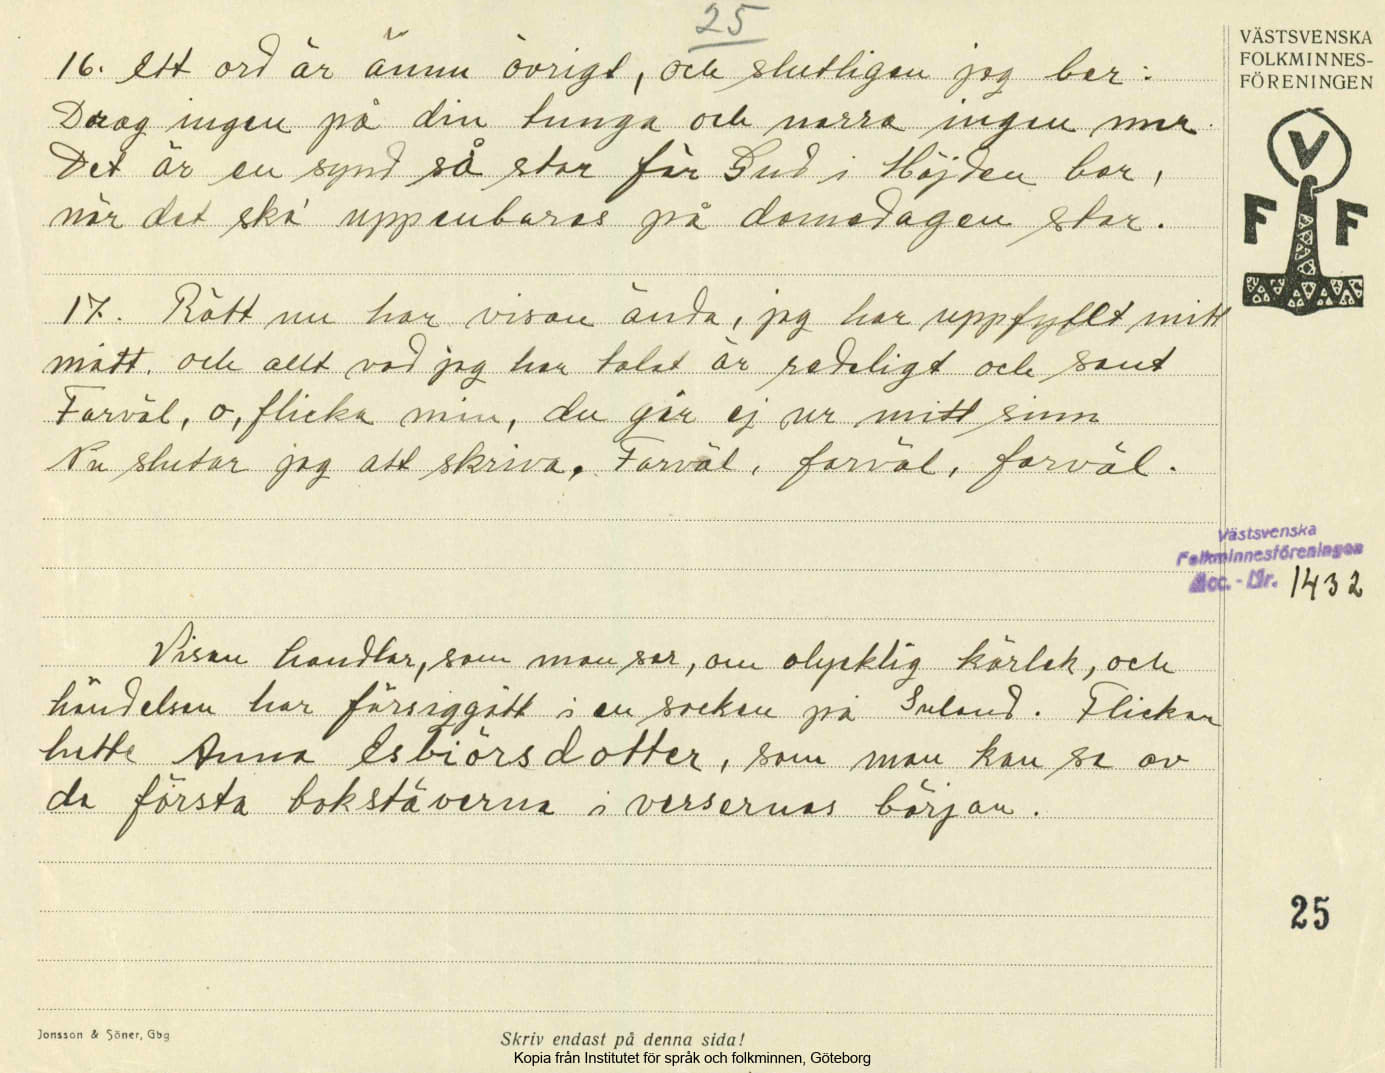 25
VÄSTSVENSKA
FOLKMINNES-
FÖRENINGEN
16. Ett ord är ännu övrigt, och slutligen jag ber:
Drag ingen på din tunga och narra ingen mer.
Det är en synd så stor för Gud i Höjden bor,
när det ska' uppenbaras på domedagen stor.
V
F F
17. Rätt nu har visan ända, jag har uppfyllt mitt
mått. och allt vad jag har talat är redeligt och sant
Farväl, o, flicka min, du går ej ur mitt sinn
Nu slutar jag att skriva. Farväl, farväl, farväl.
Västsvenska
Folkminnesföreningen
Acc.-Nr. 1432
Visan handlar, som man ser, om olycklig kärlek, och
händelsen har försiggått i en socken på Inland. Flickan
hette Anna Esbiörsdotter, som man kan se av
de första bokstäverna i versernas början.
25
Jonsson & Söner, Gbg
Skriv endast på denna sida!
Kopia från Institutet för språk och folkminnen, Göteborg